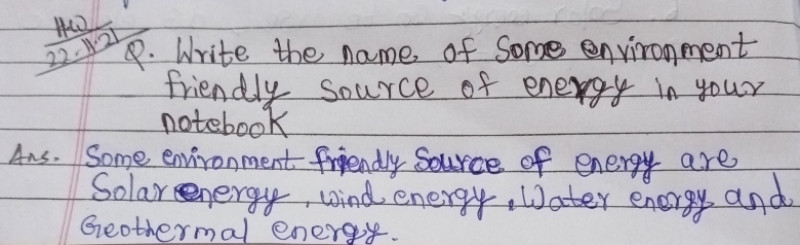 H.W
22-11-21
Q. Write the name of Some environment
friendly source of energy in your
notebook
Ans. Some environment friendly Source of energy are
Solar energy, wind energy, Water energy and
Geothermal energy.